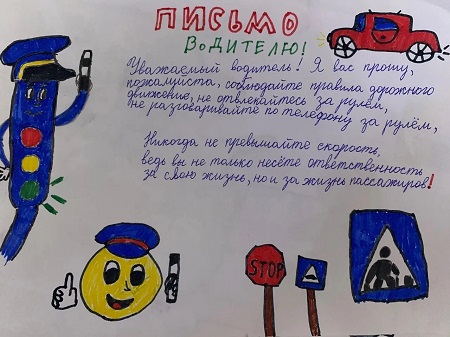 ПИСЬМО
ВОДИТЕЛЮ!
Уважаемый водитель! Я вас прошу,
пожалуйста, соблюдайте правила дорожного
движение, не отвлекайтесь за рулём,
не разговаривайте по телефону за рулём,
Никогда не превышайте скорость,
ведь вы не только несёте ответственность
за свою жизнь, но и за жизнь пассажиров!
STOP